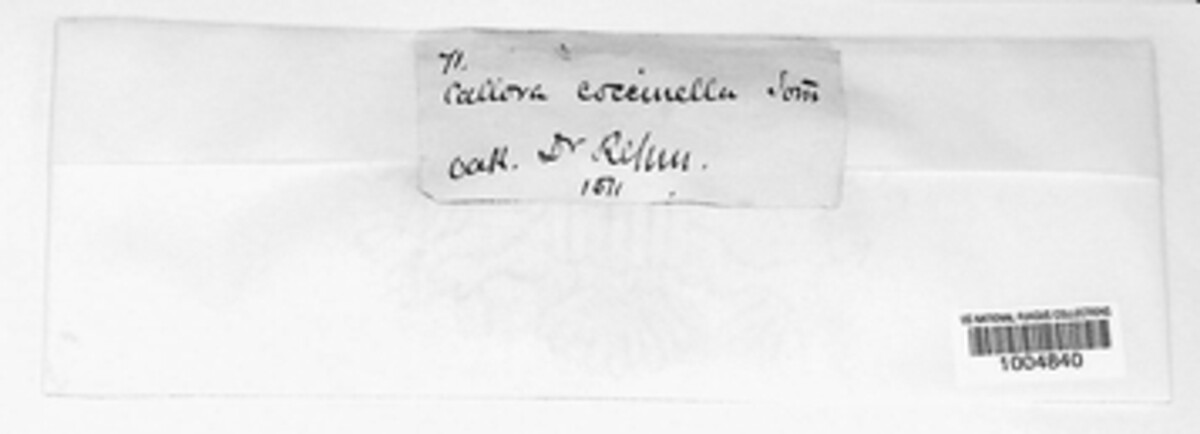 71.
Callora coccinella Som̄
Dr Rehm.
US NATIONAL FUNGUS COLLECTIONS
1004840